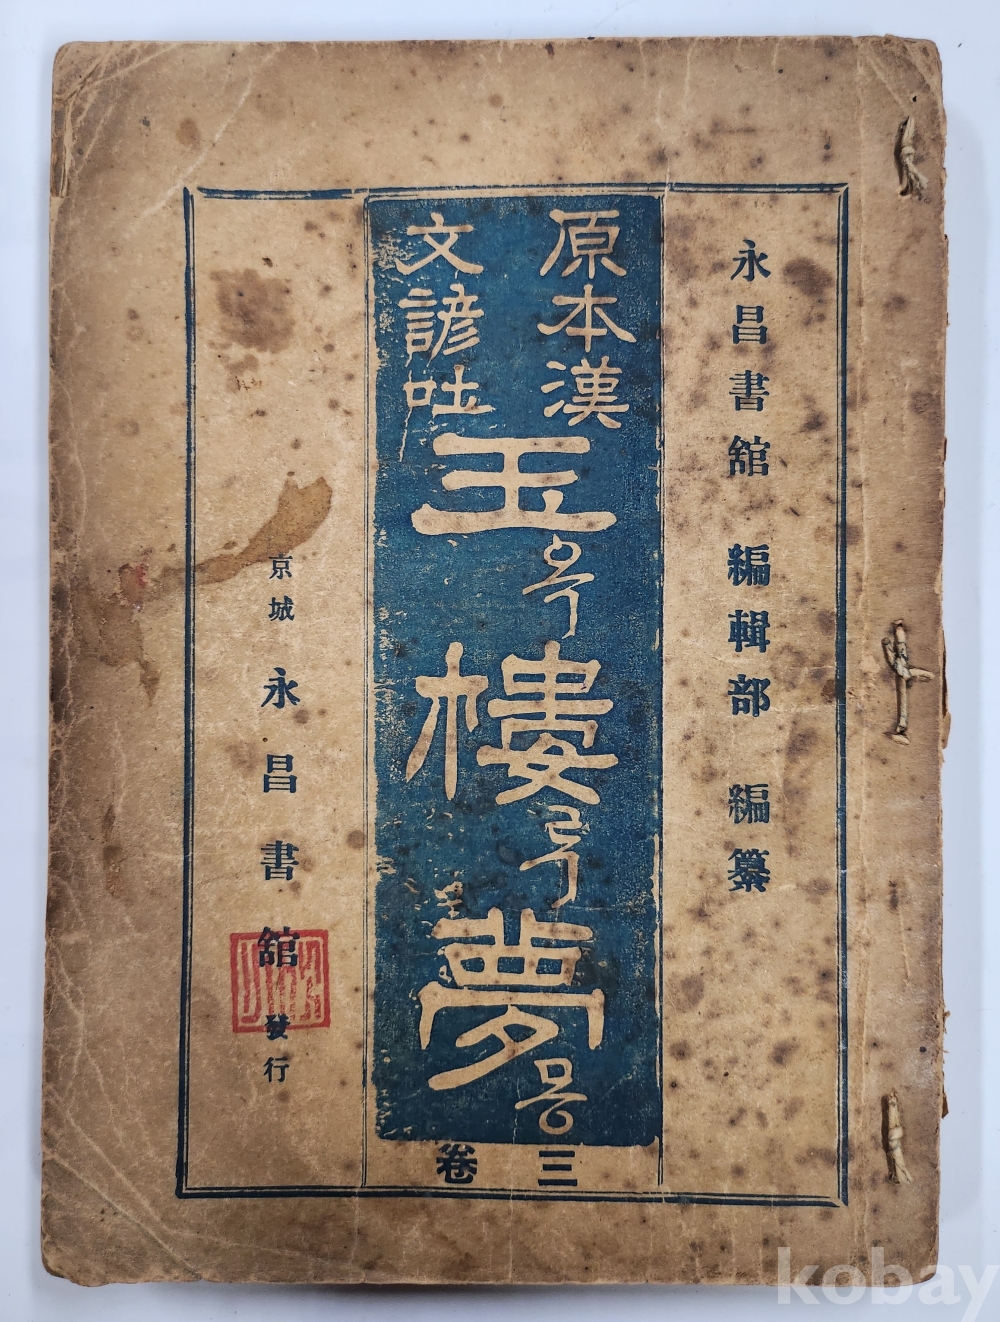 永昌書舘 編輯部 編纂
原本漢
文諺吐
玉옥樓루夢몽
三
卷
京城 永昌書舘 發行
kobay